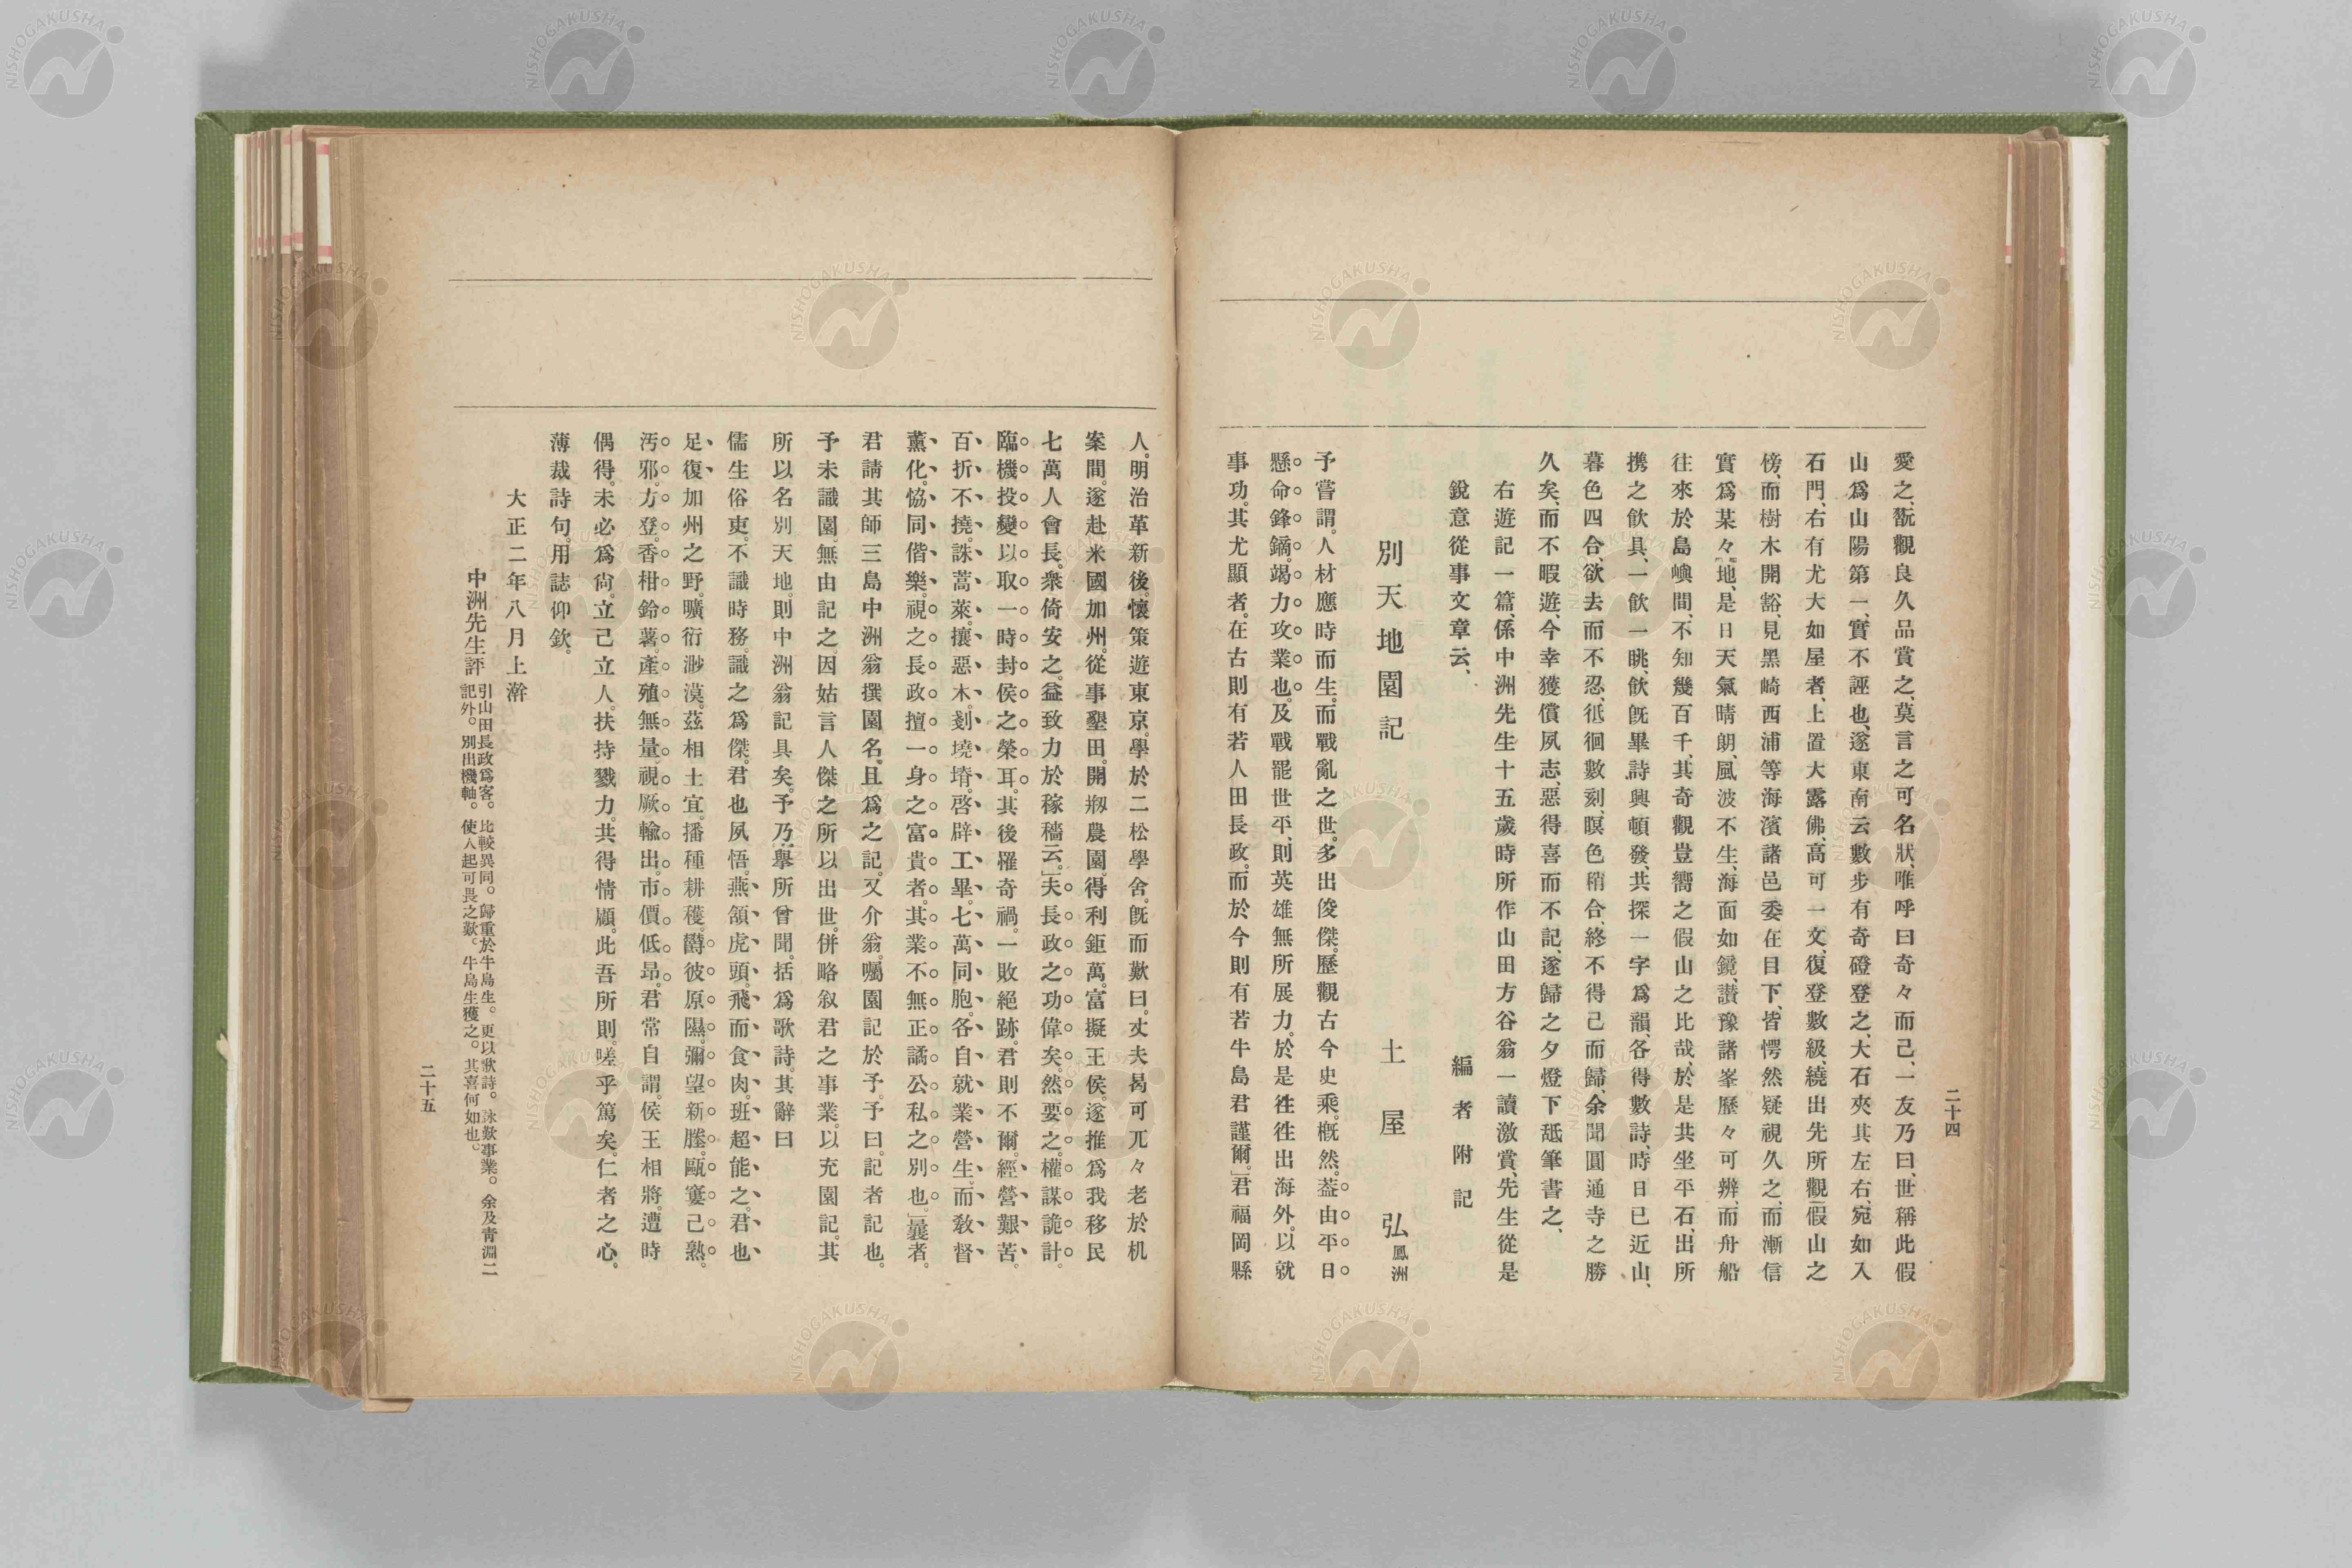 二十四
愛之、翫觀良久品賞之、莫言之可名狀、唯呼曰奇々而已、一友乃曰、世稱此假
山爲山陽第一、實不誣也、遂東南云數步有奇磴登之、大石夾其左右、宛如入
石門、右有尤大如屋者、上置大露佛、高可一丈、復登數級、繞出先所觀假山之
傍、而樹木開豁、見黑崎西浦等海濱諸邑委在目下、皆愕然疑視久之、而漸信
實爲某々地、是日天氣晴朗、風波不生、海面如鏡、讃豫諸峯歷々可辨、而舟船
往來於島嶼間、不知幾百千、其奇觀豈嚮之假山之比哉、於是共坐平石、出所
携之飮具、一飮一眺、飮旣畢、詩興頓發、共探一字爲韻、各得數詩、時日已近山、
暮色四合、欲去而不忍、徘徊數刻、暝色稍合、終不得已而歸、余聞圓通寺之勝
久矣、而不暇遊、今幸獲償夙志、惡得喜而不記、遂歸之夕燈下舐筆書之、
右遊記一篇、係中洲先生十五歲時所作山田方谷翁一讀激賞、先生從是
銳意從事文章云、
編者附記
別天地園記
土屋弘鳳洲
予嘗謂。人材應時而生。而戰亂之世。多出俊傑。歷觀古今史乘。槪然。葢由平日
懸命鋒鏑。竭力攻業也。及戰罷世平、則英雄無所展力。於是徃徃出海外。以就
事功。其尤顯者。在古則有若人田長政。而於今則有若牛島君謹爾。」君福岡縣
人。明治革新後。懷策遊東京。學於二松學舍。旣而歎曰。丈夫曷可兀々老於机
案間。遂赴米國加州。從事墾田。開剏農園。得利鉅萬。富擬王侯。遂推爲我移民
七萬人會長。衆倚安之。益致力於稼穡云。」夫長政之功偉矣。然要之。權謀詭計。
臨機投變以取一時封侯之榮耳。其後罹奇禍。一敗絕跡。君則不爾。經營艱苦。
百折不撓。誅蒿萊。攘惡木。剗墝堉。啓辟工畢。七萬同胞。各自就業營生。而敎督
薰化。恊同偕樂。視之長政擅一身之富貴者。其業不無正譎公私之別也。」曩者。
君請其師三島中洲翁撰園名。且爲之記。又介翁。囑園記於予。予曰。記者記也。
予未識園無由記之。因姑言人傑之所以出世。併略叙君之事業。以充園記。其
所以名別天地。則中洲翁記具矣。予乃擧所曾聞。括爲歌詩。其辭曰
儒生俗吏。不識時務。識之爲傑。君也夙悟。燕頷虎頭。飛而食肉。班超能之。君也
足復。加州之野。曠衍渺漠。茲相土宜。播種耕穫。欝彼原隰。彌望新塍。甌窶己熟。
汚邪方登。香柑鈴薯。產殖無量。視厥輸出。市價低昂。君常自謂。侯王相將。遭時
偶得。未必爲尙。立己立人。扶持戮力。共得情願。此吾所則。嗟乎篤矣。仁者之心。
薄裁詩句。用誌仰欽。
大正二年八月上澣
中洲先生評
引山田長政爲客。比較異同。歸重於牛島生。更以歌詩。詠歎事業。余及靑淵二
記外。別出機軸。使人起可畏之歎。牛島生獲之。其喜何如也。
二十五